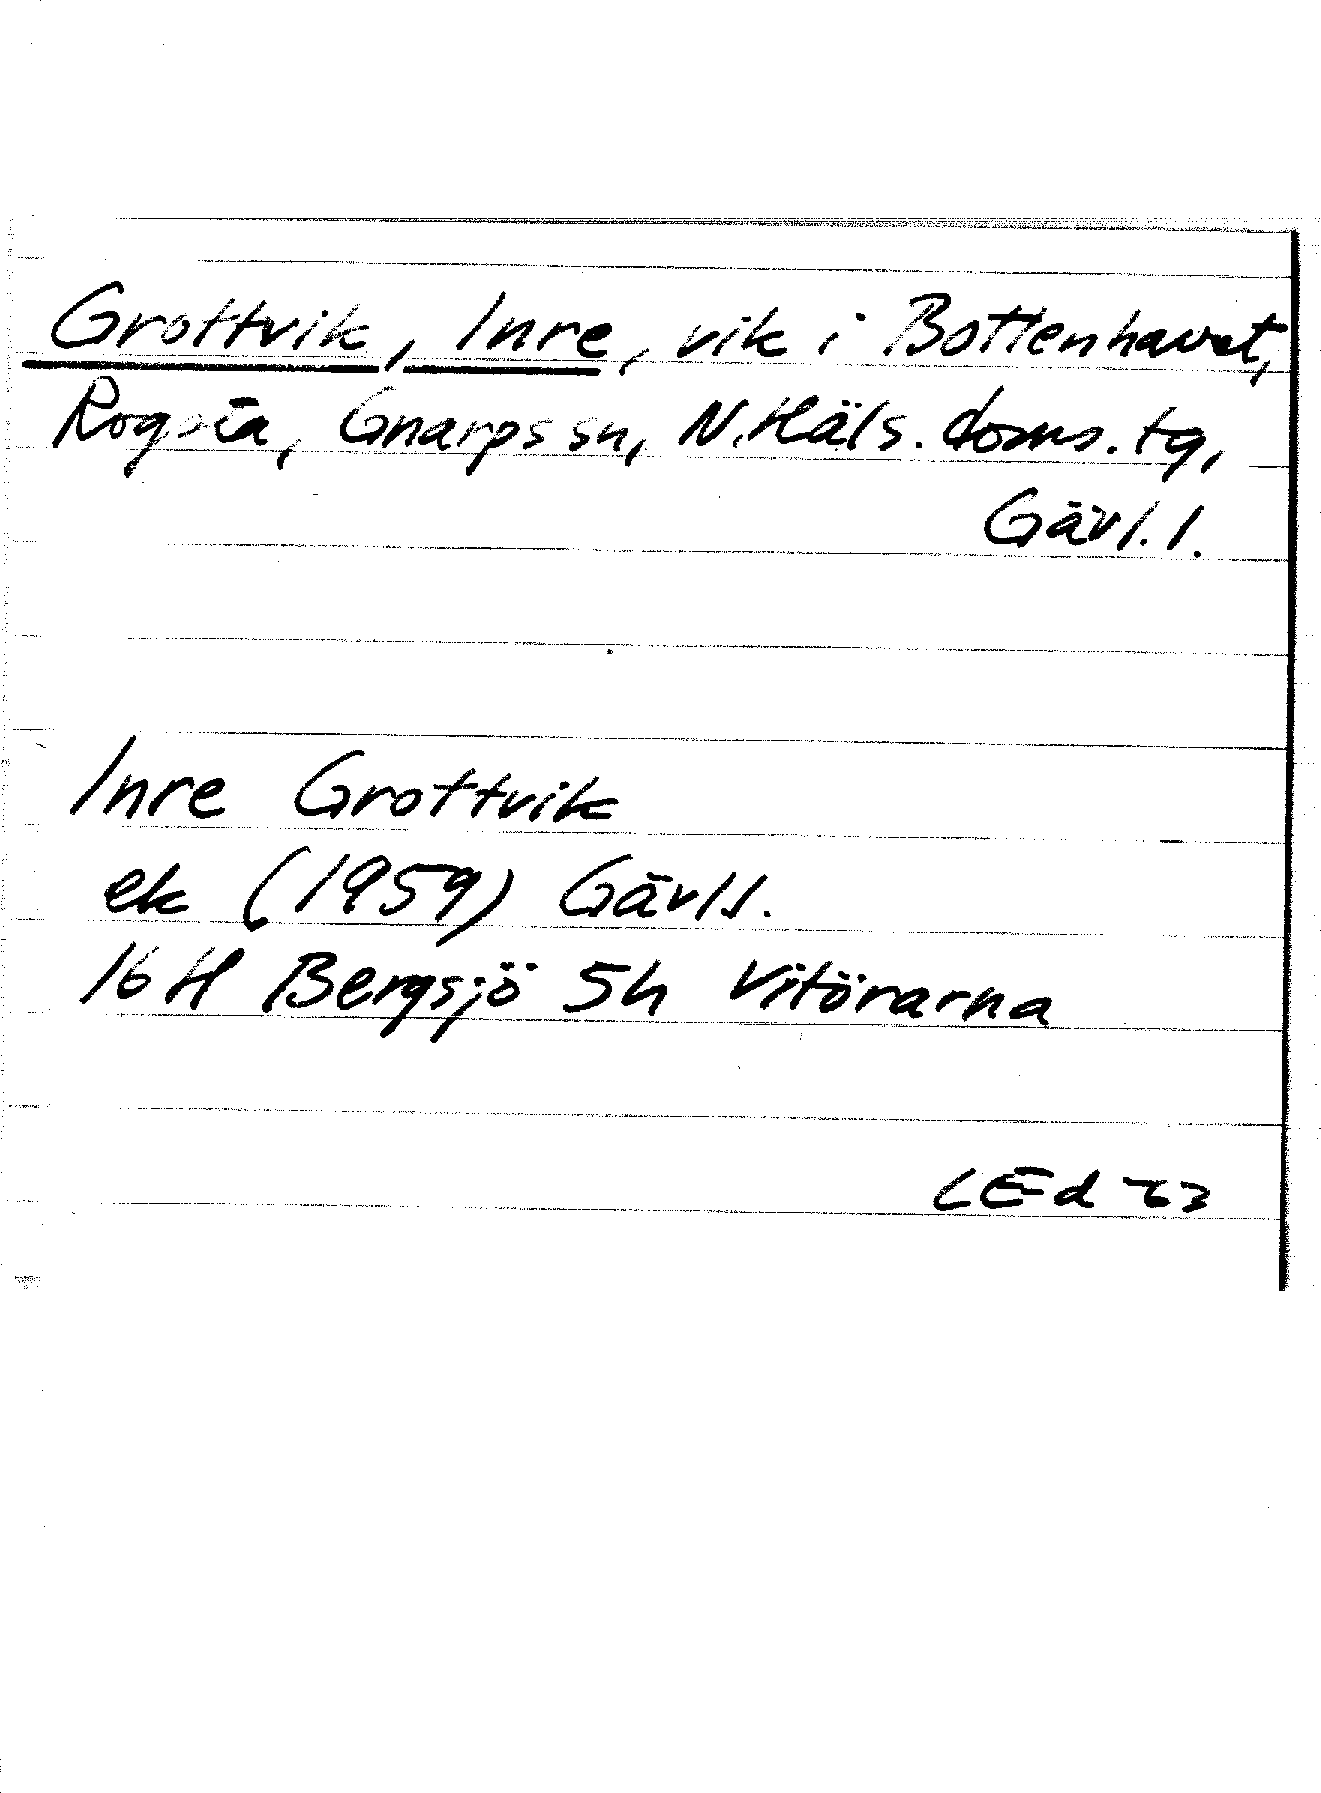 Grottvik, Inre, vik i Bottenhavet,
Rogsta, Gnarps sn, N. Häls. doms. tg,
Gävl. l.
Inre Grottvik
ek (1959) Gävl l.
16 H Bergsjö 5h Vitörarna
LEd -63